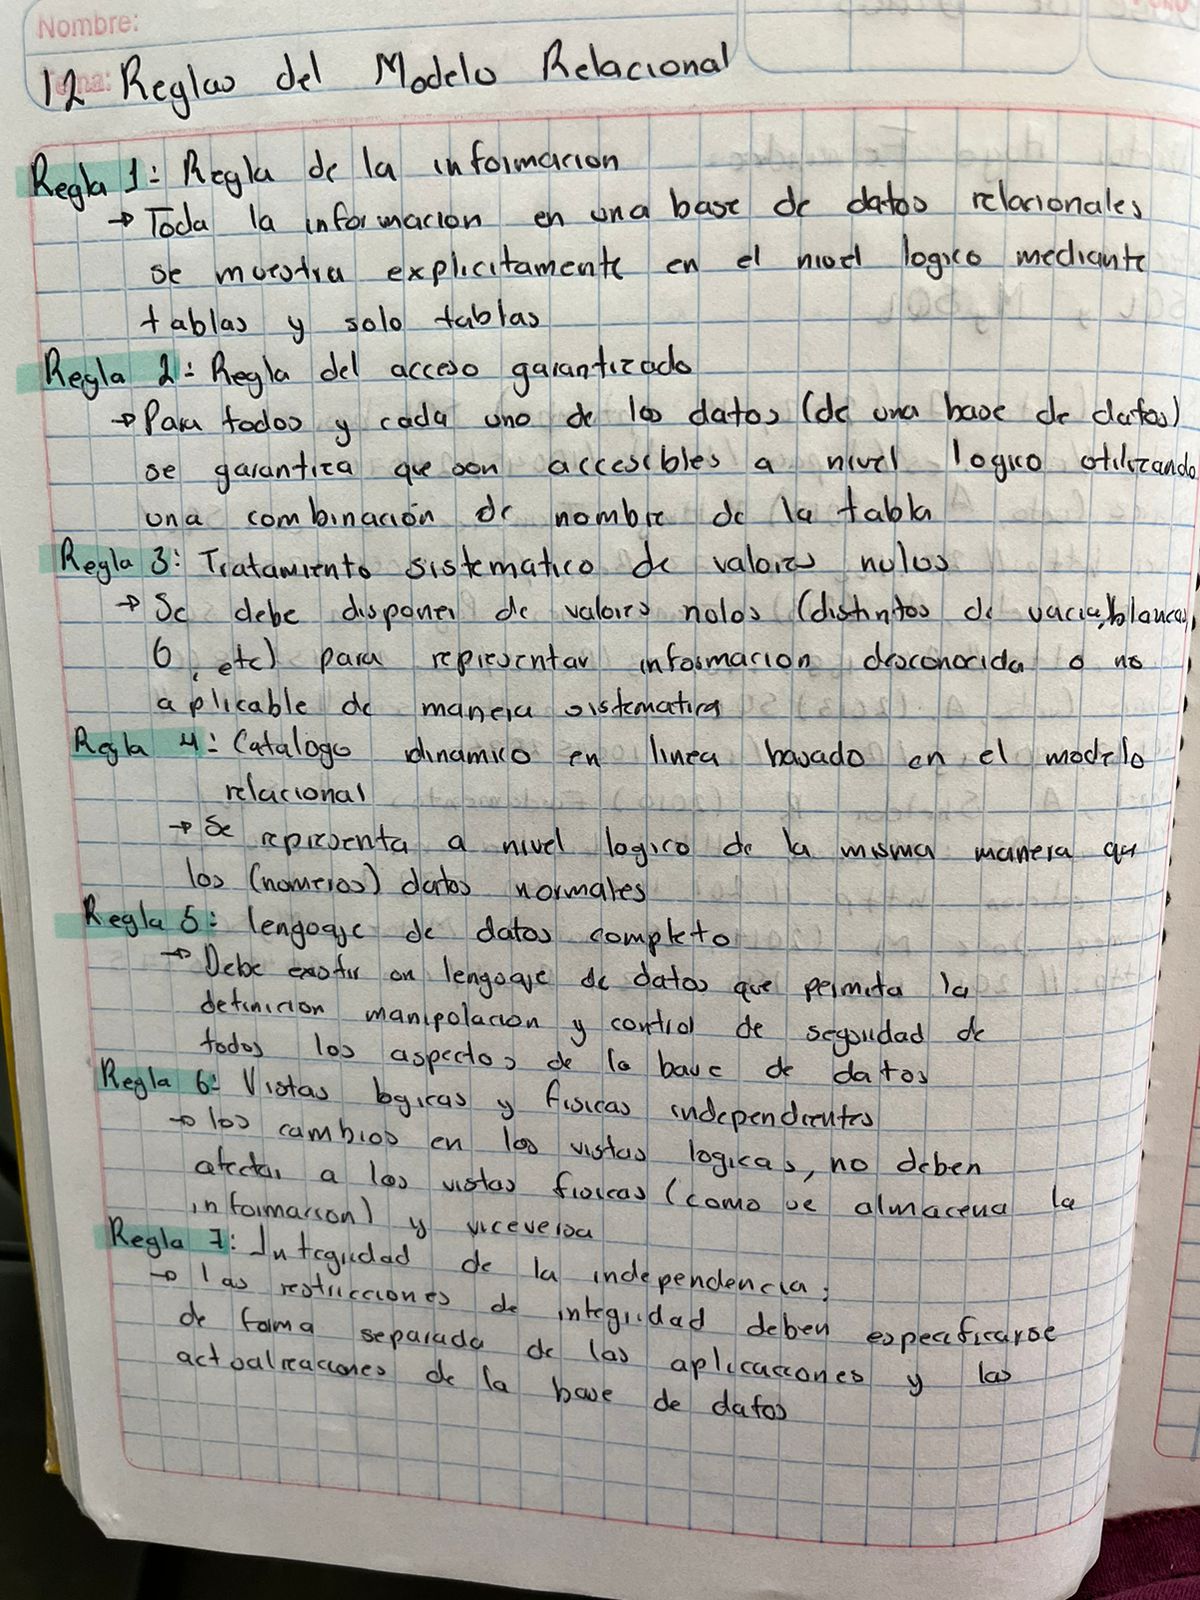 Nombre:
12 Reglas del Modelo Relacional
Regla 1: Regla de la informacion
→ Toda la informacion en una base de datos relacionales
se muestra explicitamente en el nivel logico mediante
tablas y solo tablas
Regla 2: Regla del acceso garantizado
→ Para todos y cada uno de los datos (de una base de datos)
se garantiza que son accesibles a nivel logico utilizando
una combinación de nombre de la tabla
Regla 3: Tratamiento sistematico de valores nulos
→ Se debe disponer de valores nulos (distintos de vacia, blancas,
0, etc) para representar informacion desconocida o no
aplicable de manera sistematica
Regla 4: Catalogo dinamico en linea basado en el modelo
relacional
→ Se representa a nivel logico de la misma manera que
los (numeros) datos normales
Regla 5: lenguaje de datos completo
→ Debe existir un lenguaje de datos que permita la
definicion manipulacion y control de seguridad de
todos los aspectos de la base de datos
Regla 6: Vistas logicas y fisicas independientes
→ los cambios en las vistas logicas, no deben
afectar a las vistas fisicas (como se almacena la
informacion) y viceversa
Regla 7: Integridad de la independencia;
→ las restricciones de integridad deben especificarse
de forma separada de las aplicaciones y las
actualizaciones de la base de datos